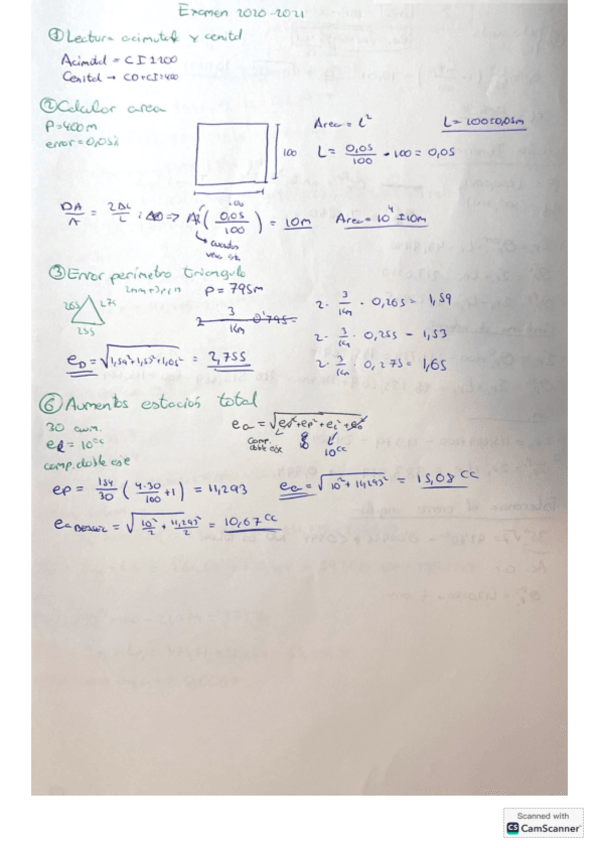 Examen 2020-2021
① Lectura acimutal y cenital
Acimutal = CI ± 200
Cenital → CD+CI=400
② Calcular area
P=400m
error = 0,05%
100
100
Area = L²
L = 0,05/100 · 100 = 0,05
L = 100±0,05m
DA/A = 2ΔL/L ; ΔA => A² (0,05/100) = 10m
Area = 10⁴ ± 10m
↳ cuadrado
③ Error perímetro triangulo
2mm+3ppm
P = 795m
265
275
255
2 · 3/Km · 0'795 =
2 · 3/Km · 0,265 = 1,59
2 · 3/Km · 0,255 = 1,53
2 · 3/Km · 0,275 = 1,65
e_D = √1,59²+1,53²+1,65² = 2,755
⑥ Aumentos estación total
30 aum.
e_l = 10cc
comp. doble eje
e_a = √e_v²+e_p²+e_l²+e_d²
Comp. doble eje
10cc
ep = 150/30 (4·30/100 +1) = 11,293
e_a = √10² + 11,293² = 15,08 cc
e_a BESSEL = √10²/2 + 11,293²/2 = 10,67cc
Scanned with
CS CamScanner